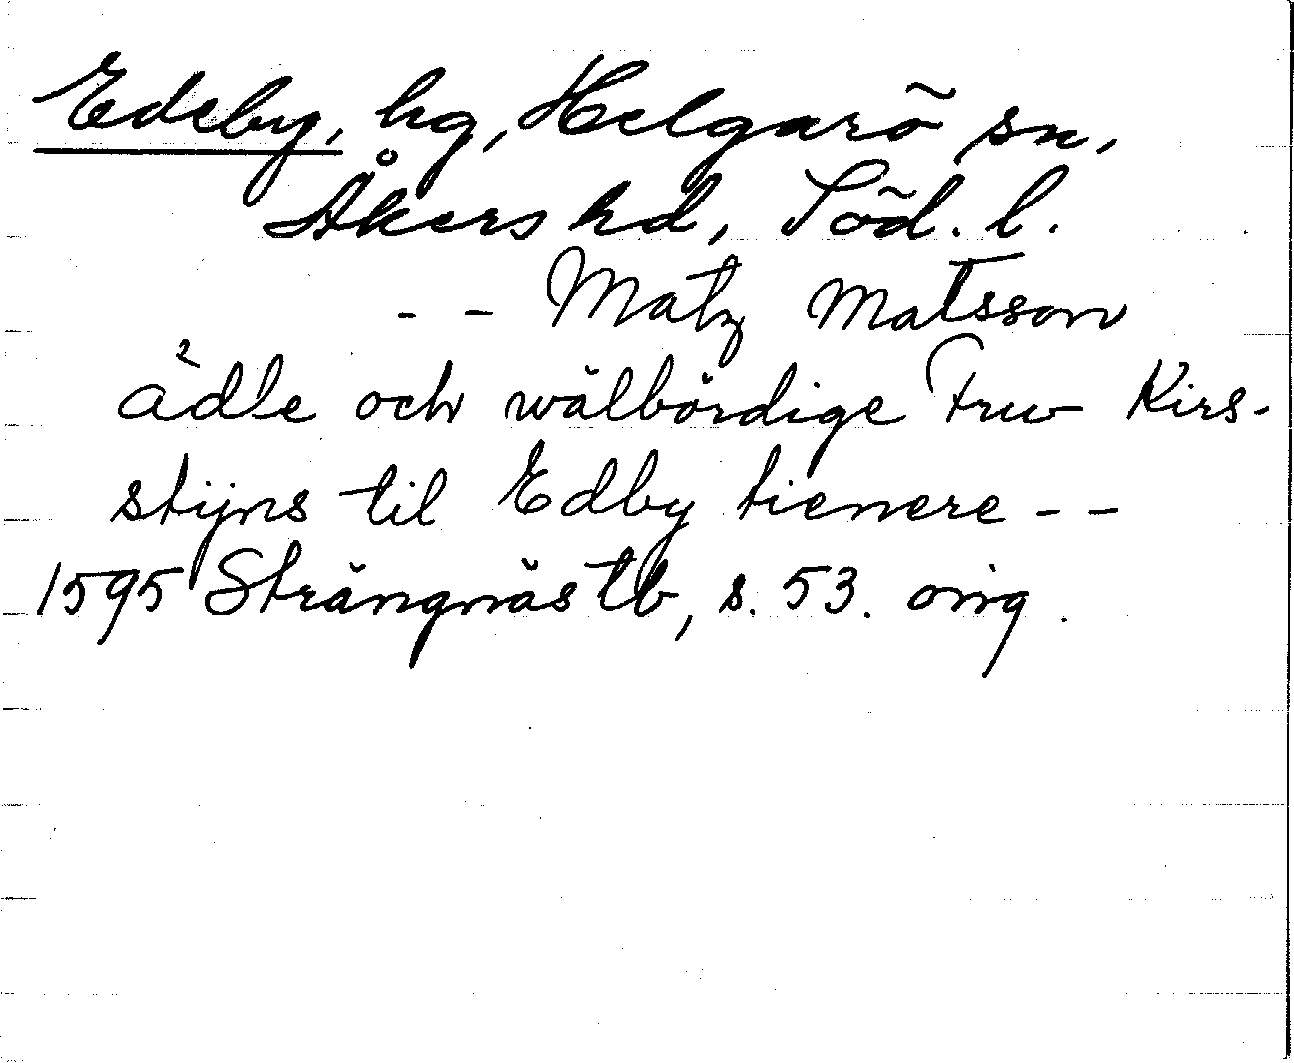 Edeby, hg, Helgarö sn,
Åkers hd, Söd. l.
- - Matz Matsson
ädle och wälbördige Frw Kirs-
stijns til Edby tienere - -
1595 Strängnäs tb, s. 53. orig.